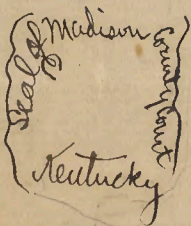 Seal of
Madison
County Court
Kentucky